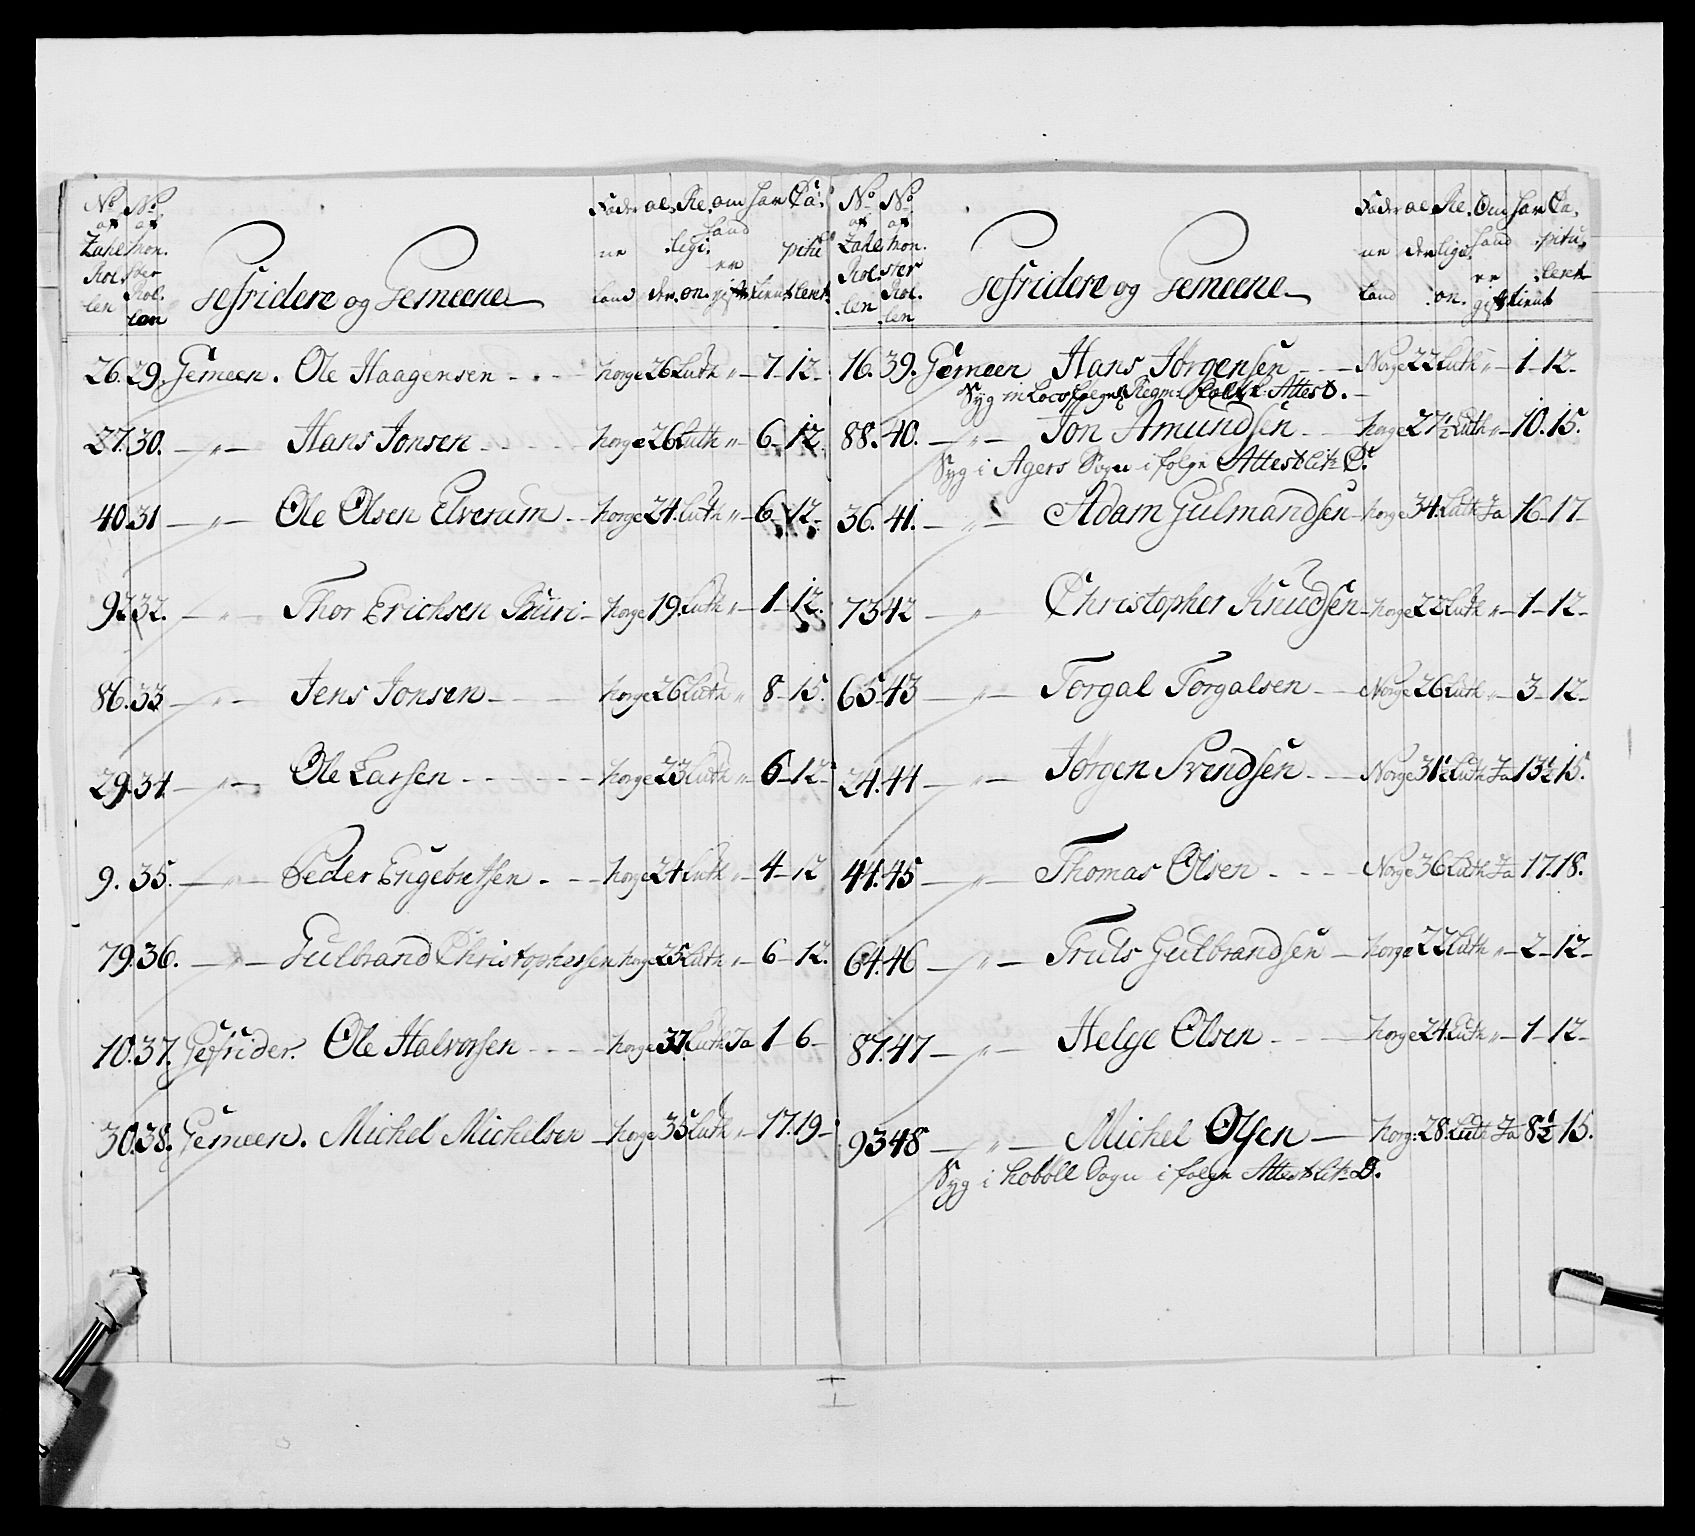 No af Zahl Rol len
No af Mon. ster Rol. len
Gefridere og Gemeene
Fæderne land
alder
Religion.
om hand er gift
har tient
Capituleret
26. 29. Gemeen. Ole Haagensen - Norge 26 Luth " 7 - 12 -
27. 30. " Hans Jonsen - Norge 26 Luth " 6 - 12.
40. 31 " Ole Olsen Elverum - Norge 24. Luth " 6 - 12 -
92 32. " Thor Erichsen Buri - Norge 19. Luth " 1 - 12.
86. 33 " Jens Jonsen - Norge 26 Luth " 8 - 15.
29. 34. " Ole Larsen - Norge 23 Luth " 6 - 12
9. 35. " Peder Engebretsen - Norge 24 Luth " 4 - 12
79. 36. " Gulbrand Christophersen Norge 25 Luth " 6 - 12.
10. 37. Gefrider. Ole Halvorsen - Norge 37 Luth Ja 1 - 6 -
30. 38. Gemeen. Michel Michelsen - Norge 35 Luth " 17. 19 -
No af Zahl Rol. len
No af Mon. ster Rol. len
Gefridere og Gemeene
Fæderne land
alder
Religion.
Om hand er gift
har tient
Capituleret
16. 39. Gemeen Hans Jörgensen - Norge 22 Luth " 1 - 12 -
Syg in Loco følge Regm: Feldsk: Attest.
88. 40. " Jon Amundsen - Norge 27½ Luth " 10. 15.
Syg i Agers Sogn i følge Attest lit: C.
36. 41. " Adam Gulmandsen - Norge 34. Luth Ja 16 - 17 -
73 42 " Christopher Knudsen - Norge 22 Luth " 1 - 12 -
65 43 " Torgal Torgalsen - Norge 26 Luth " 3 - 12 -
24. 44 " Jörgen Svendsen - Norge 31½ Luth Ja 13½ 15.
44. 45 " Thomas Olsen - Norge 36 Luth Ja 17. 18.
64. 46 " Truls Gulbrandsen - Norge 22 Luth " 2 - 12 -
87. 47 " Helge Olsen - Norge 24. Luth " 1 - 12 -
93 48 " Michel Olsen - Norg: 28. Luth Ja 8½ 15.
Syg i Hoböll Sogn i følge Attest lit: D.